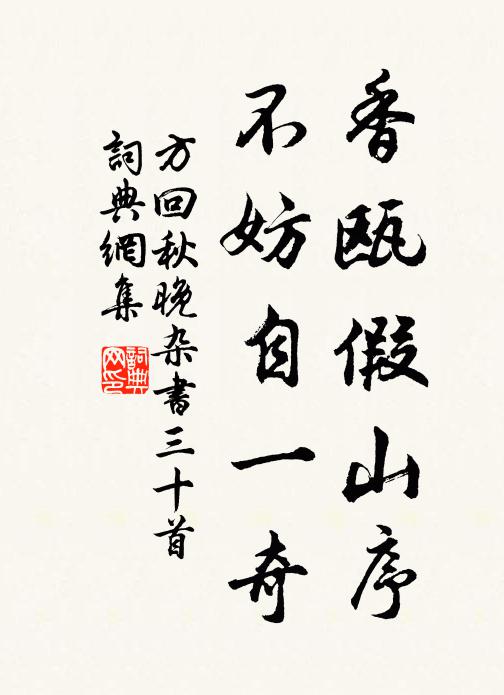 香瓯假山序
不妨自一奇
方回秋晚杂书三十首
詞典網集
詞典网印